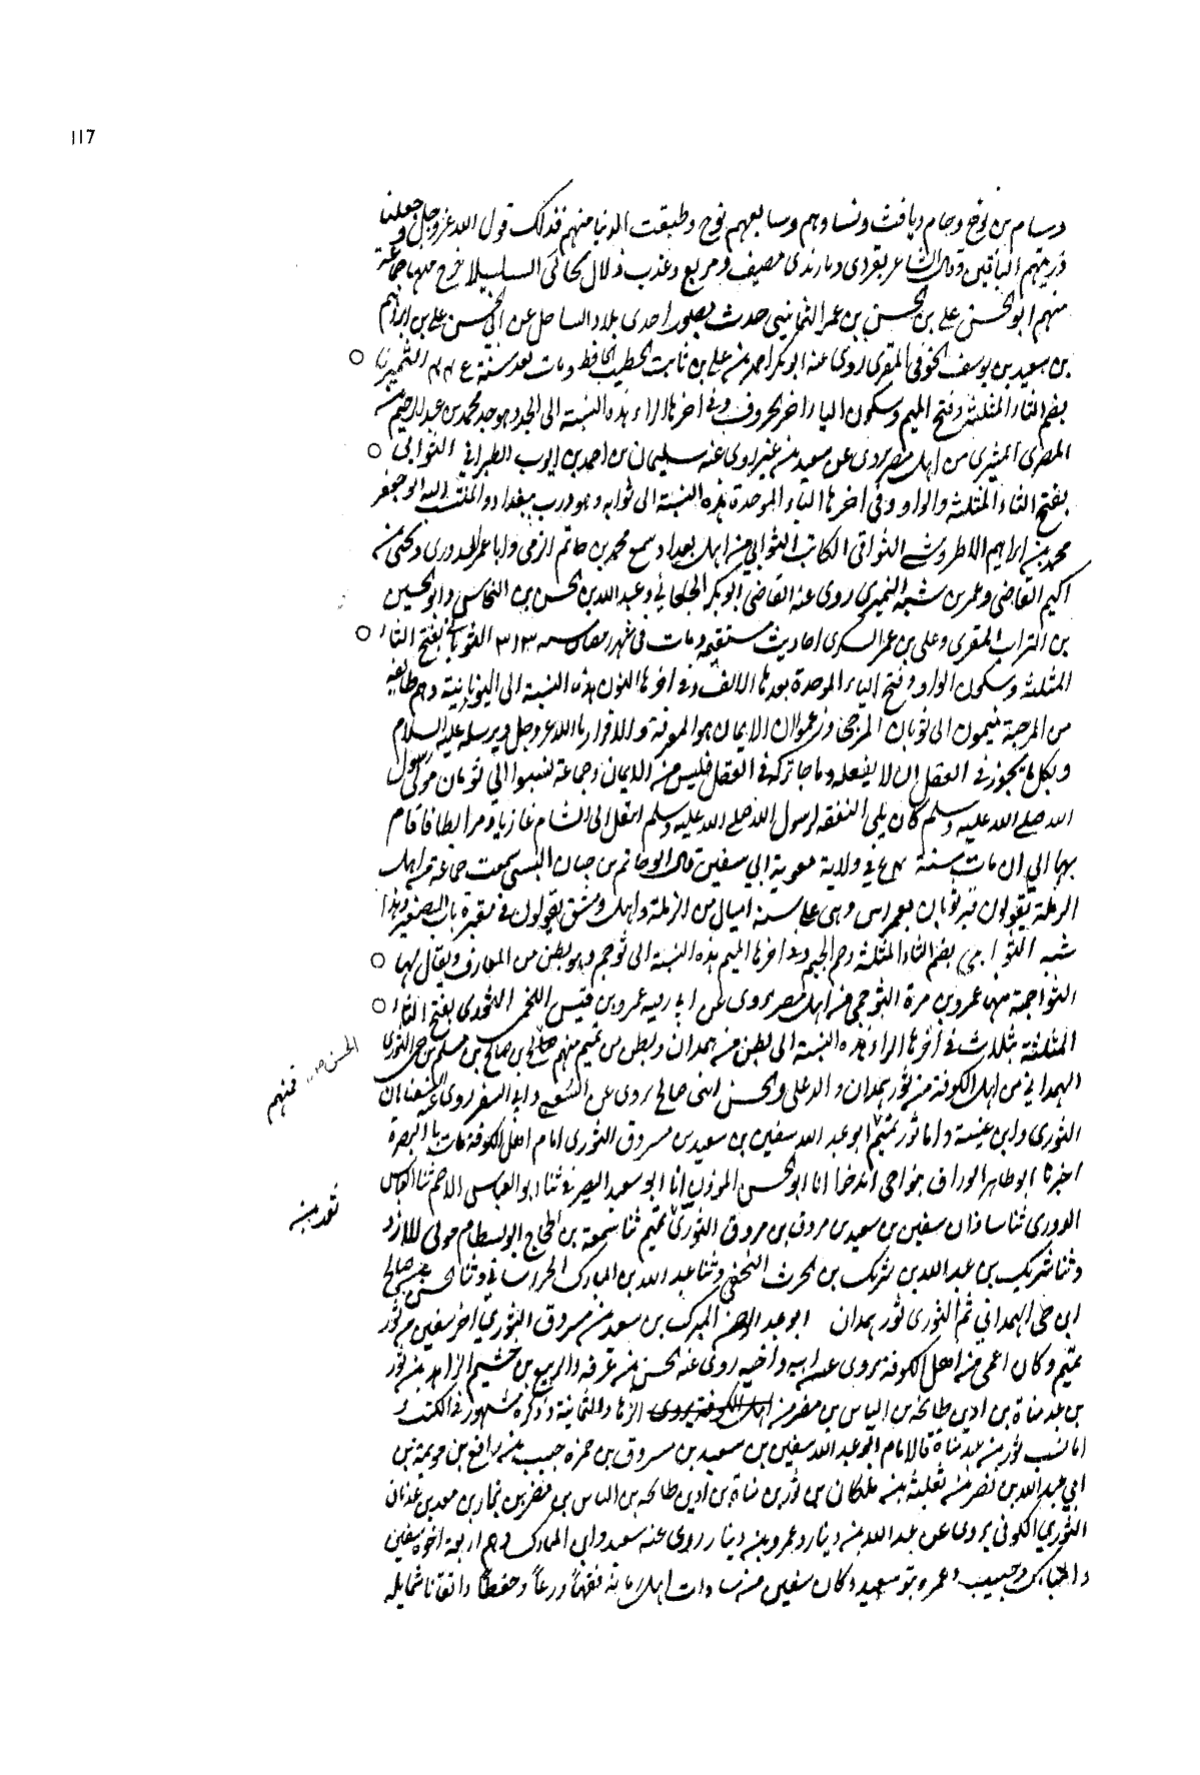 117
وسام بن نوح وحام ويافث ونساوهم وسابعهم نوح وطبقت الدنيا منهم فذلك قول الله عز وجل وجعلنا
ذريتهم الباقين وقال الشاعر بقردى وبازندى مصيف ومربع وعذب زلال يحاكى السلسبيل خرج منها جماعة
منهم ابو الحسن على بن الحسن بن عمر الثمانينى حدث بصور احدى بلاد الساحل عن ابى الحسن على بن ابراهيم
بن سعيد بن يوسف الحوفى المقرى روى عنه ابو بكر احمد بن على بن ثابت الخطيب الحافظ ومات بعد سنة
بضم الثاء المثلثة وفتح الميم وسكون الياء اخر الحروف وفى اخرها الراء هذه النسبة الى الجد وهو جد محمد بن عبد الرحيم بن
المصرى الثميرى من اهل مصر يروى عن سعيد بن عفير روى عنه سليمان بن احمد بن ايوب الطبرانى الثوابى
بفتح الثاء المثلثة والواو وفى اخرها الباء الموحدة هذه النسبة الى ثوابه وهو درب ببغداد والمنتسب اليه ابو جعفر
محمد بن ابراهيم الاطروش الثوابى الكاتب الثوابى من اهل بغداد سمع محمد بن حاتم الزمى وابا عمر الدورى ويحيى بن
اكثم القاضى وعمر بن شبه النميرى روى عنه القاضى ابو بكر الجعابى وعبد الله بن الحسن بن النحاس وابو الحسين
بن البواب المقرى وعلى بن عمر السكرى احاديث مستقيمه ومات فى شهر رمضان سنه ٣١٣ الثوبانى بفتح الثاء
المثلثة وسكون الواو وفتح الباء الموحدة بعدها الالف وفى اخرها النون هذه النسبة الى الثوبانية وهم طائفة
من المرجئة ينتمون الى ثوبان المرجى وزعموا ان الايمان هو المعرفة والاقرار بالله عز وجل وبرسله عليه السلام
وبكل ما يجوز فى العقل ان لا يفعله وما جاز تركه فى العقل فليس من الايمان وجماعة نسبوا الى ثوبان مولى رسول
الله صلى الله عليه وسلم كان يلى النفقه لرسول الله صلى الله عليه وسلم انتقل الى الشام غازيا ومرابطا فاقام
بها الى ان مات سنة فى ولاية معوية ابى سفين قال ابو حاتم بن حبان البستى سمعت جماعة من اهل
الرملة يقولون قبر ثوبان بعمواس وهى على ستة اميال من الرملة واهل دمشق يقولون فى مقبرة باب الصغير وهذا
شبه الثوجمى بضم الثاء المثلثة وضم الجيم وفى اخرها الميم هذه النسبة الى ثوجم وهو بطن من المعافر ويقال لها
الثواجمة منها عمرو بن مرة الثوجمى من اهل مصر يروى عن ابى عمرو بن قيس اللخمى الثورى بفتح الثاء
المثلثة بثلاث فى اخرها الراء هذه النسبة الى بطن من همدان وبطن من تميم منهم صالح بن صالح بن مسلم بن حى الثورى
الهمدانى من اهل الكوفة من ثور همدان والد على والحسن ابنى صالح يروى عن الشعبى وابى السفر روى عنه سفيان
الثورى وابن عيينة واما ثور تميم ابو عبد الله سفين بن سعيد بن مسروق الثورى امام اهل الكوفة مات بالبصرة
اخبرنا ابو طاهر الوراق بنواحى اندخوا انا ابو الحسن المؤذن انا ابو سعيد الصيرفى ثنا ابو العباس الاصم ثنا العباس
الدورى ثنا شاذان سفين بن سعيد بن مسروق الثورى تميم ثنا شعبة بن الحجاج ابو بسطام مولى للازد
وثنا شريك بن عبد الله بن شريك بن الحرث النخعى وثنا عبد الله بن المبارك الخراسانى وثنا الحسن بن صالح
ابن حى الهمدانى ثم الثورى ثور همدان ابو عبد الرحمن المبارك بن سعيد بن مسروق الثورى اخو سفين من ثور
تميم وكان اعمى من اهل الكوفة يروى عن ابيه واخيه روى عنه الحسن بن عرفه والربيع بن خثيم الزاهد من ثور
بن عبد مناة بن اد بن طابخه بن الياس بن مضر من اهل الكوفة يروى الزهاد الثمانية وذكره مشهور فى الكتب
اما نسب ثور بن عبد مناة فالامام ابو عبد الله سفين بن سعيد بن مسروق بن حمزه حبيب بن رافع بن موهبة بن
ابى عبد الله بن نصر بن ثعلبة بن ملكان بن ثور بن مناة بن اد بن طابخه بن الياس بن مضر بن نزار بن معد بن عدنان
الثورى الكوفى يروى عن عبد الله بن دينار وعمرو بن دينار روى عنه سعيد وابن المبارك وهم اربعة اخوة سفين
والمبارك وحبيب وعمرو بنو سعيد وكان سفين من سادات اهل زمانه فقهاً وورعاً وحفظاً واتقانا شمايله
الحسن
فمنهم
تقدمت